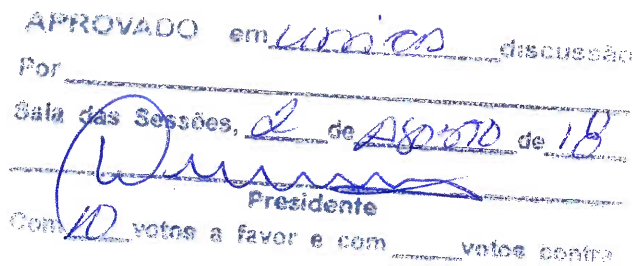 APROVADO em única discussão
Por
Sala das Sessões, 2 de Agosto de 18
Presidente
Com 10 votos a favor e com votos contra